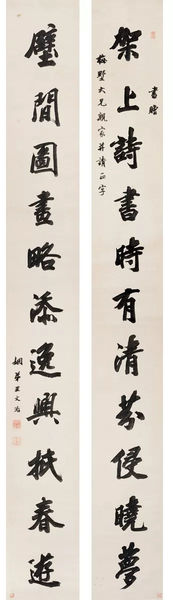 書贈
架上詩書時有清芬侵曉夢
梅墅大兄親家并請正字
壁間圖畫略添逸興抵春遊
姻弟王文治